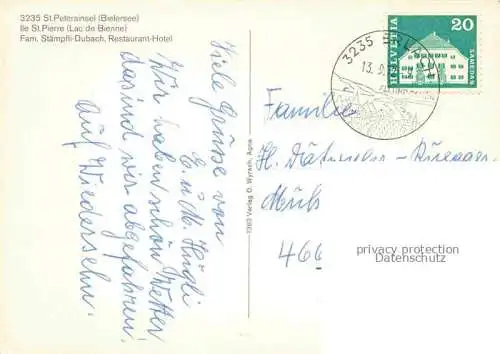 3235 St.Petersinsel (Bielersee)
Ile St.Pierre (Lac de Bienne)
Fam. Stämpfli-Dubach, Restaurant-Hotel
Viele Grüsse von
E. u. M. Hügli
Wir haben schön Wetter
da sind wir abgefahren.
auf Wiedersehn.
1393 Verlag O. Wyrsch, Agno
3235 ERLACH
13.
HELVETIA
20
SAMEDAN
Familie
H.
466
privacy protection
Datenschutz